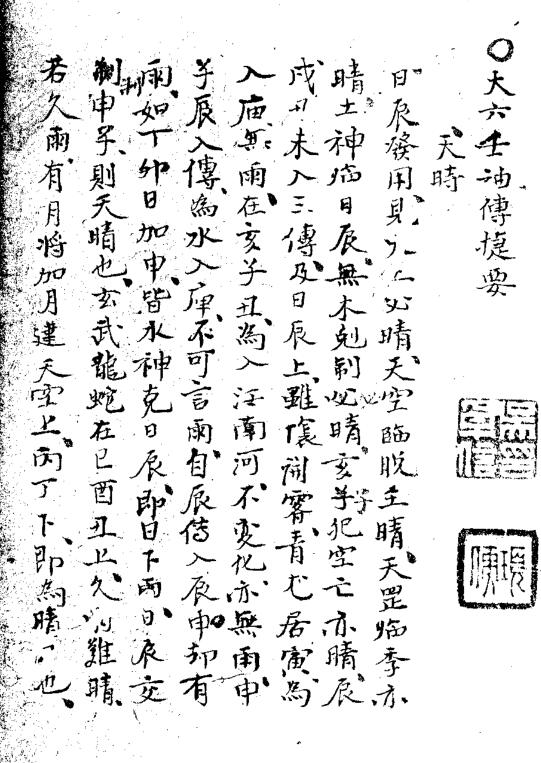 ○大六壬神傳捷要
天時
日辰發用見必晴天空臨脫主晴天罡臨季亦
晴土神臨日辰無木剋制必晴亥子犯空亡亦晴辰
戌丑未入三傳及日辰上雖陰開霽青龙居寅為
入庙無雨在亥子丑為入江南河不变化亦無雨申
子辰入傳為水入庫不可言雨自辰傳入辰申却有
雨如丁卯日加申皆水神克日辰即日下雨日辰交
制申子則天晴也玄武龍蛇在巳酉丑上久難晴
若久雨有月將加月建天空上丙丁下即為晴也